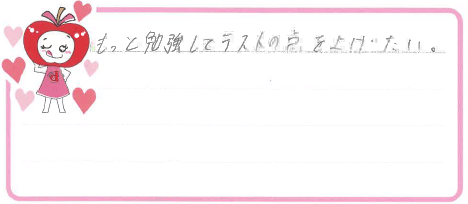 もっと勉強してテストの点を上げたい。